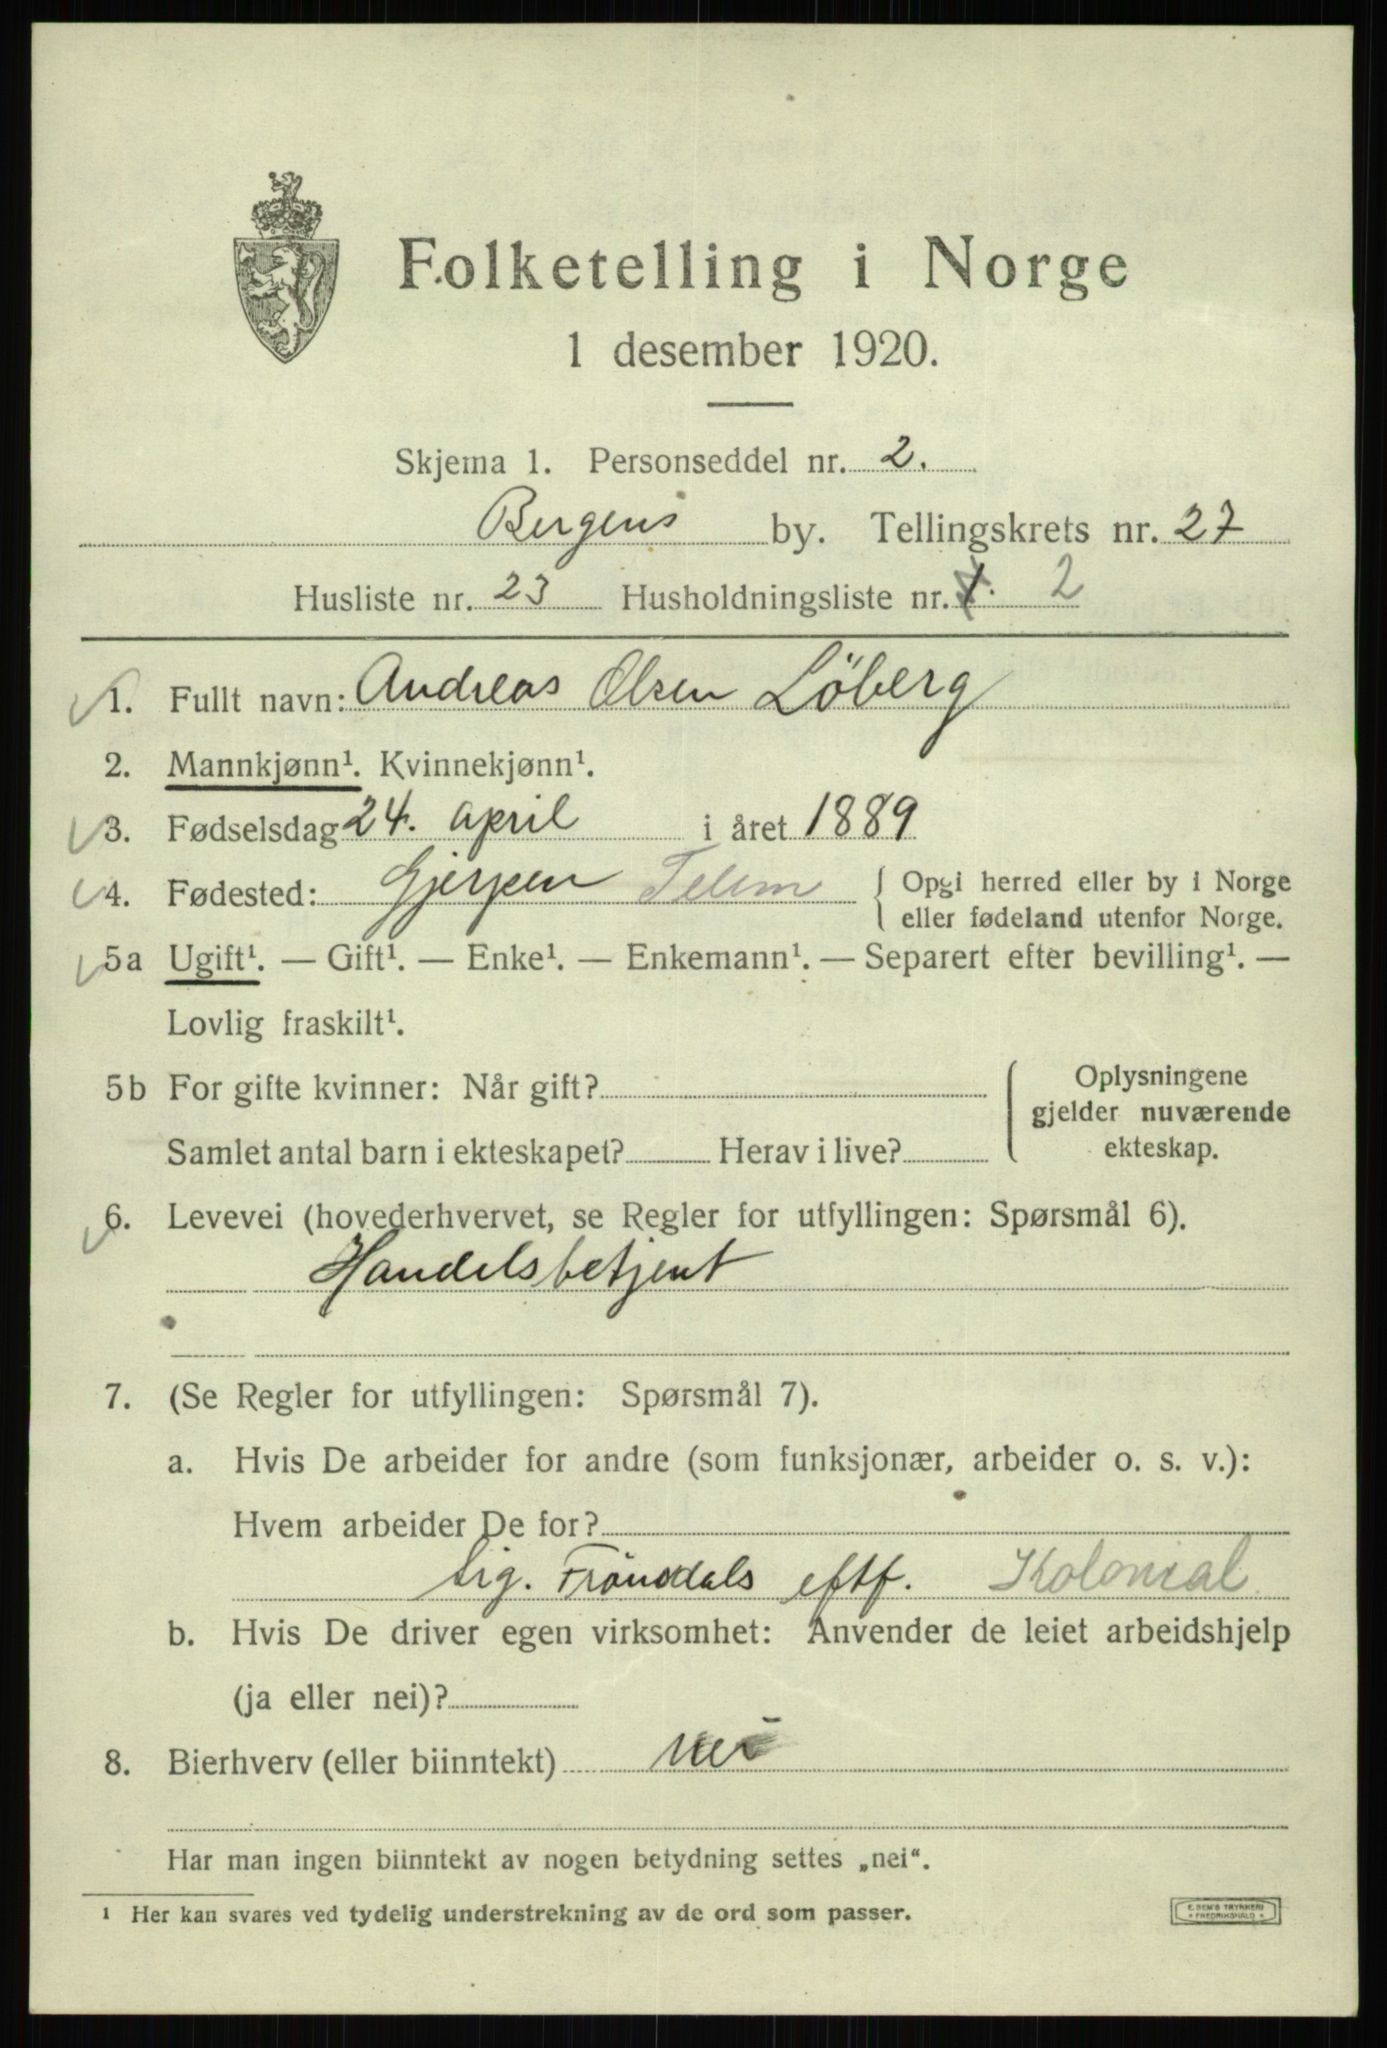 Folketelling i Norge
1 desember 1920.
Skjema 1. Personseddel nr. 2.
Bergens by. Tellingskrets nr. 27
Husliste nr. 23 Husholdningsliste nr. 1. 2
1. Fullt navn: Andreas Olsen Löberg
2. Mannkjønn¹. Kvinnekjønn¹.
3. Fødselsdag 24. april i året 1889
4. Fødested: Gjerpen Telem { Opgi herred eller by i Norge
eller fødeland utenfor Norge.
5a Ugift¹. — Gift¹. — Enke¹. — Enkemann¹. — Separert efter bevilling¹. —
Lovlig fraskilt¹.
5b For gifte kvinner: Når gift? { Oplysningene
gjelder nuværende
Samlet antal barn i ekteskapet? Herav i live? ekteskap.
6. Levevei (hovederhvervet, se Regler for utfyllingen: Spørsmål 6).
Handelsbetjent
7. (Se Regler for utfyllingen: Spørsmål 7).
a. Hvis De arbeider for andre (som funksjonær, arbeider o. s. v.):
Hvem arbeider De for?
Sig. Frönsdals eftf. Kolonial
b. Hvis De driver egen virksomhet: Anvender de leiet arbeidshjelp
(ja eller nei)?
8. Bierhverv (eller biinntekt) nei
Har man ingen biinntekt av nogen betydning settes „nei“.
¹ Her kan svares ved tydelig understrekning av de ord som passer.
E. SEM'S TRYKKERI
* FREDRIKSHALD *